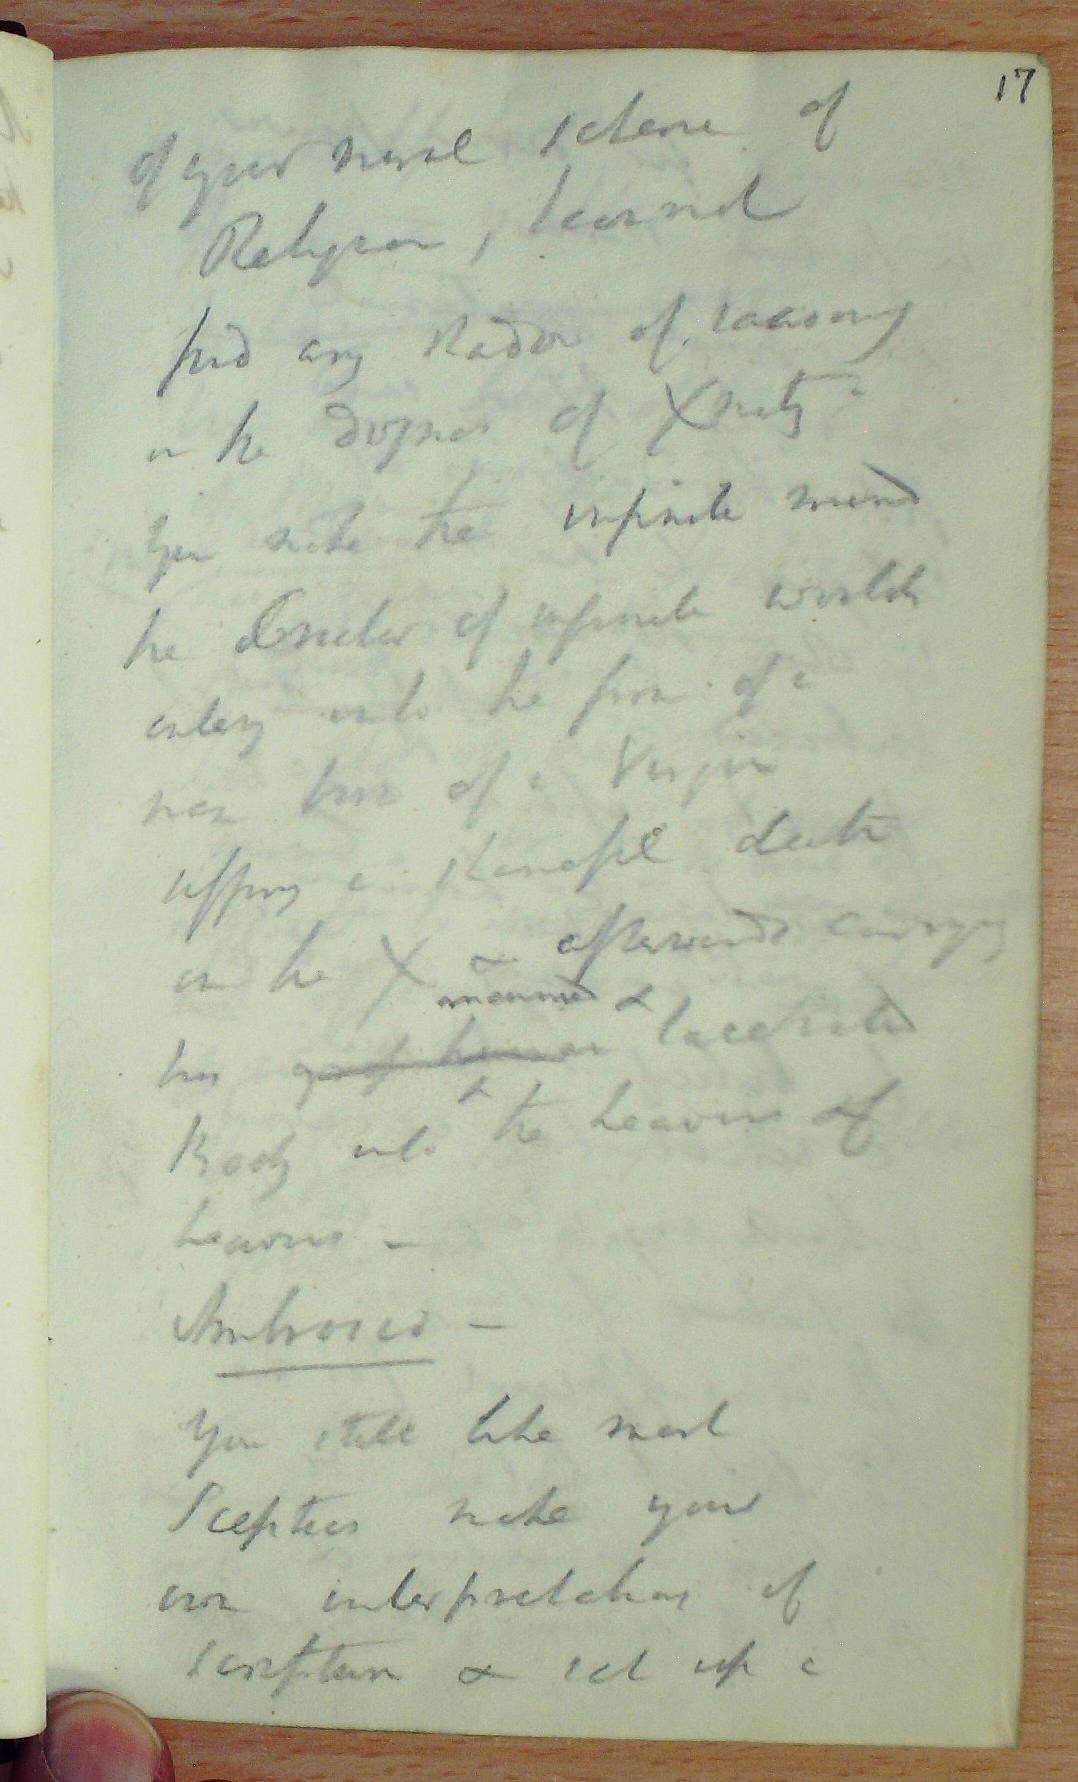 17
of your moral scheme of
Religion, I cannot
find any shadow of reasoning
in the dogmas of Xnity
You make the infinite mind
the Creator of infinite worlds
enter into the form of a
man born of a Virgin
suffering a shameful death
on the X & afterwards carrying
maimed &
his lacerated
Body into the heavens of
heavens –
Ambrosio –
You still like most
Sceptics make your
own interpretations of
scripture & set up a